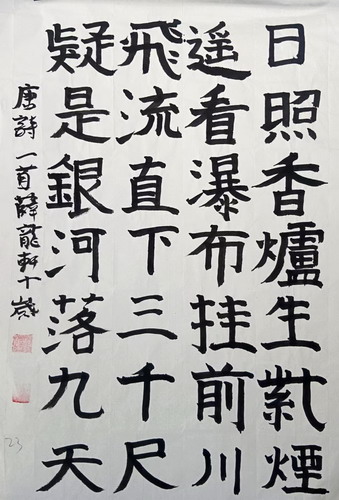 日照香爐生紫煙
遥看瀑布挂前川
飛流直下三千尺
疑是銀河落九天
唐詩一首薛龍軒十歲
23